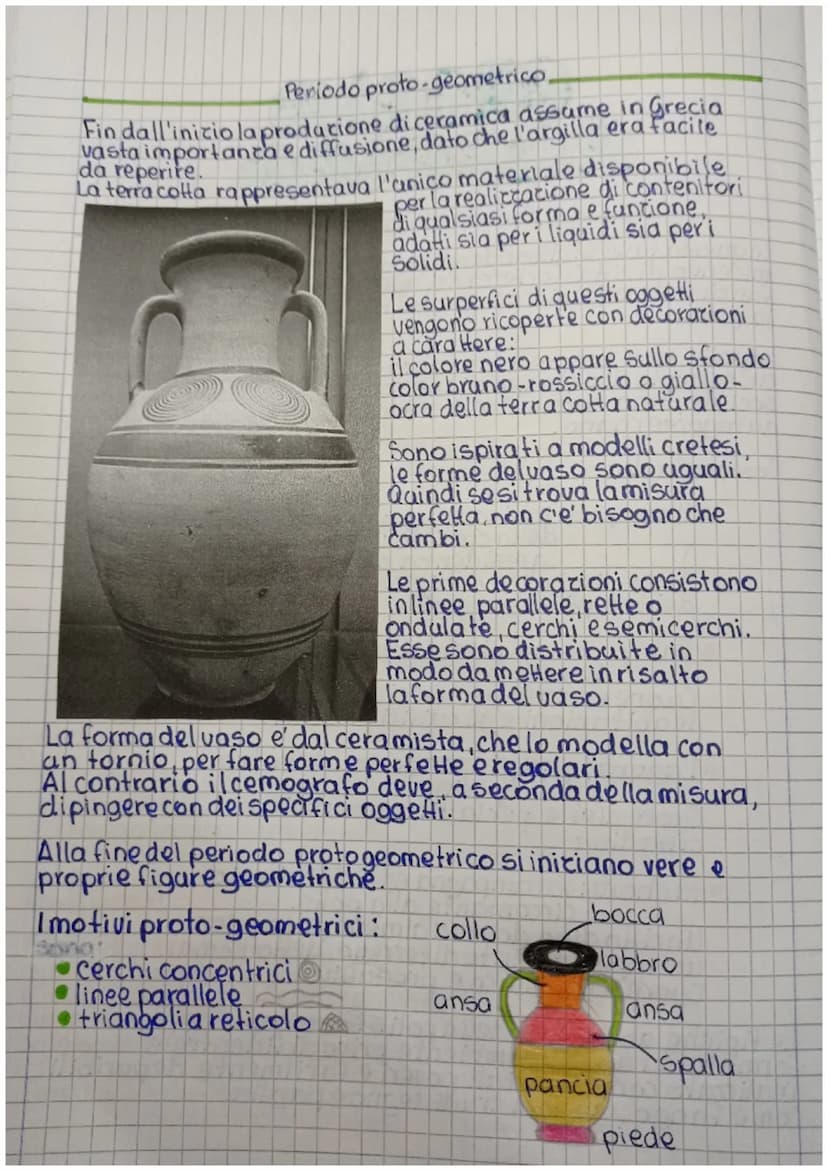 Periodo proto-geometrico
Fin dall'inizio la produzione di ceramica assume in Grecia
vasta importanza e diffusione, dato che l'argilla era facile
da reperire.
La terracotta rappresentava l'unico materiale disponibile
per la realizzazione di contenitori
di qualsiasi forma e funzione,
adatti sia per i liquidi sia per i
solidi.
Le surperfici di questi oggetti
vengono ricoperte con decorazioni
a carattere:
il colore nero appare sullo sfondo
color bruno-rossiccio o giallo-
ocra della terra cotta naturale.
Sono ispirati a modelli cretesi,
le forme del vaso sono uguali.
Quindi se si trova la misura
perfetta, non c'e' bisogno che
cambi.
Le prime decorazioni consistono
in linee parallele, rette o
ondulate, cerchi e semicerchi.
Esse sono distribuite in
modo da mettere in risalto
la forma del vaso.
La forma del vaso e' dal ceramista, che lo modella con
un tornio, per fare forme perfette e regolari.
Al contrario il cemografo deve, a seconda della misura,
dipingere con dei specifici oggetti.
Alla fine del periodo protogeometrico si iniziano vere e
proprie figure geometriche.
I motivi proto-geometrici:
sono:
cerchi concentrici
linee parallele
triangoli a reticolo
bocca
collo
labbro
ansa
ansa
spalla
pancia
piede